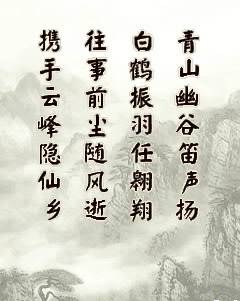 青山幽谷笛声扬
白鹤振羽任翱翔
往事前尘随风逝
携手云峰隐仙乡